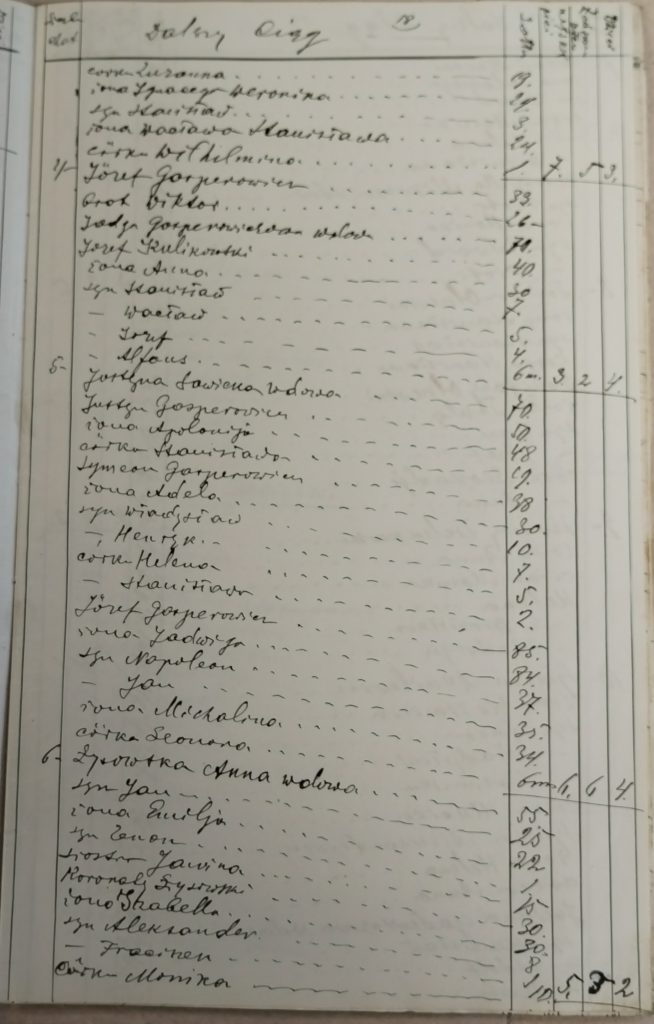 Dalszy Ciąg IV
córka Zuzanna 19.
żona Ignacego Weronika 29.
syn Stanisław 3.
żona Wacława Stanisława 24.
córka Wilhelmina 1. 7. 5 3.
4 Józef Gasperowicz 33.
brat Wiktor 26
Jadzga Gasperowiczowa wdowa 70.
Józef Kulikowski 40.
żona Anna 30.
syn Stanisław 7.
- Wacław 5.
- Józef 4.
- Alfons 6m. 3. 2 4.
5 Justyna Sawicka wdowa 70.
Justyn Gasperowicz 50.
żona Apolonija 48
córka Stanisława 19.
Symeon Gasperowicz 38
żona Adela 30.
syn Władysław 10.
- Henryk 7.
córka Helena 5.
- Stanisława 2.
Józef Gasperowicz 85.
żona Jadwiga 84.
syn Napoleon 37.
- Jan 35.
żona Michalina 34.
córka Leonora 6m 6. 6 4.
6 Anna wdowa 55
syn Jan 25
żona Emilja 22
syn Zenon 1.
siostra Janina 15
30.
żona Izabella 30.
syn Aleksander 8
-
córka Monika 5. 3 2